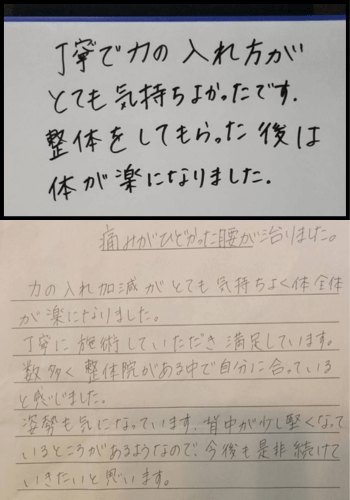 丁寧で力の入れ方が
とても気持ちよかったです.
整体をしてもらった後は
体が楽になりました.
痛みがひどかった腰が治りました。
力の入れ加減がとても気持ちよく体全体
が楽になりました。
丁寧に施術していただき満足しています。
数多く整体院がある中で自分に合っている
と感じました。
姿勢も気になっています、背中が少し堅くなって
いるところがあるようなので、今後も是非続けて
いきたいと思います。